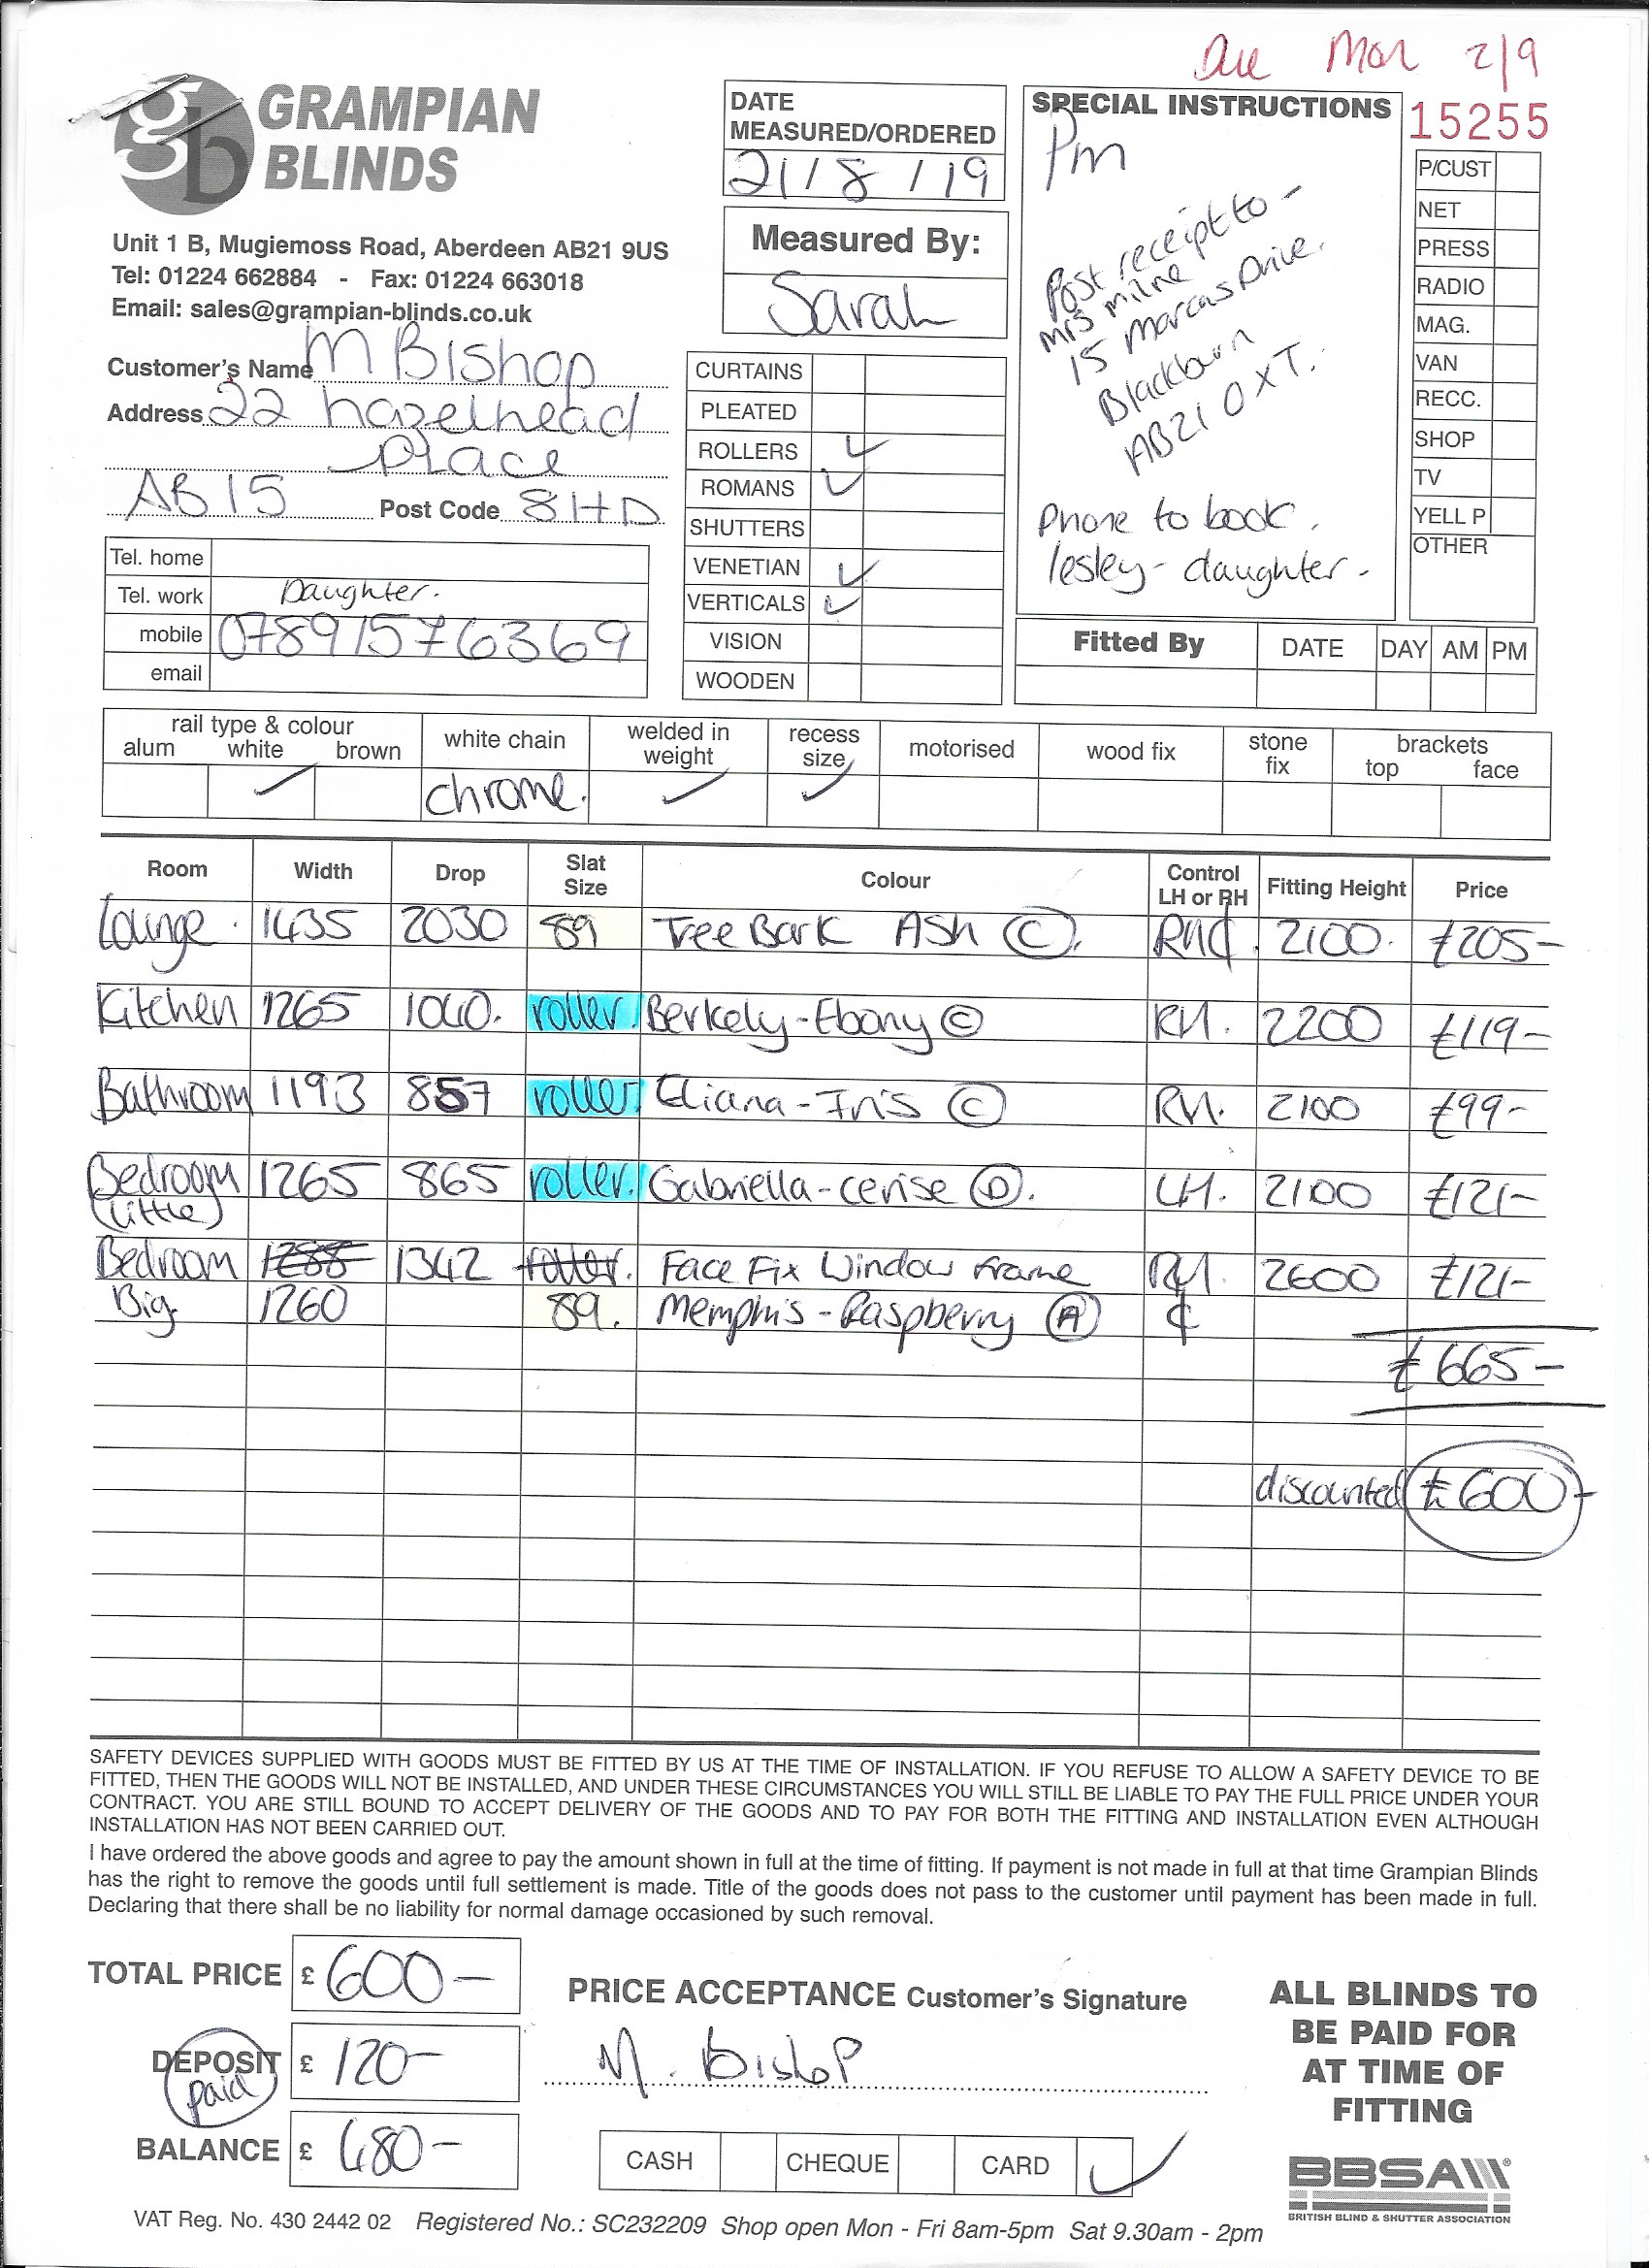 Due Mon 2/9
GRAMPIAN
BLINDS
Unit 1 B, Mugiemoss Road, Aberdeen AB21 9US
Tel: 01224 662884 - Fax: 01224 663018
Email: sales@grampian-blinds.co.uk
Customer's Name M Bishop
Address 22 hazelhead
Place
AB15 Post Code 8HD
Tel. home
Tel. work Daughter.
mobile 07891576369
email
DATE
MEASURED/ORDERED
21/8/19
Measured By:
Sarah
CURTAINS
PLEATED
ROLLERS ✓
ROMANS ✓
SHUTTERS
VENETIAN ✓
VERTICALS ✓
VISION
WOODEN
SPECIAL INSTRUCTIONS
Pm
Post receipt to -
Mrs milne
15 Marcus Drive.
Blackburn
AB21 0XT.
Phone to book.
lesley - daughter -
15255
P/CUST
NET
PRESS
RADIO
MAG.
VAN
RECC.
SHOP
TV
YELL P
OTHER
Fitted By DATE DAY AM PM
rail type & colour white chain welded in weight recess size motorised wood fix stone fix brackets
alum white brown top face
✓ chrome. ✓ ✓
Room Width Drop Slat Size Colour Control LH or RH Fitting Height Price
Lounge 1435 2030 89 Tree Bark Ash (C). RH₵. 2100. £205-
Kitchen 1265 1040. roller. Berkely-Ebony © RH. 2200 £119-
Bathroom 1193 857 roller. Eliana-Iris (C) RH. 2100 £99-
Bedroom 1265 865 roller. Gabriella-cerise (D). LH. 2100 £121-
(Little)
Bedroom 1288 1342 roller. Face Fix Window frame RH. 2600 £121-
Big. 1260 89. Memphis-Raspberry (A) ₵
£665-
discounted £600-
SAFETY DEVICES SUPPLIED WITH GOODS MUST BE FITTED BY US AT THE TIME OF INSTALLATION. IF YOU REFUSE TO ALLOW A SAFETY DEVICE TO BE
FITTED, THEN THE GOODS WILL NOT BE INSTALLED, AND UNDER THESE CIRCUMSTANCES YOU WILL STILL BE LIABLE TO PAY THE FULL PRICE UNDER YOUR
CONTRACT. YOU ARE STILL BOUND TO ACCEPT DELIVERY OF THE GOODS AND TO PAY FOR BOTH THE FITTING AND INSTALLATION EVEN ALTHOUGH
INSTALLATION HAS NOT BEEN CARRIED OUT.
I have ordered the above goods and agree to pay the amount shown in full at the time of fitting. If payment is not made in full at that time Grampian Blinds
has the right to remove the goods until full settlement is made. Title of the goods does not pass to the customer until payment has been made in full.
Declaring that there shall be no liability for normal damage occasioned by such removal.
TOTAL PRICE £ 600-
DEPOSIT £ 120-
paid
BALANCE £ 480-
PRICE ACCEPTANCE Customer's Signature
M. Bishop
CASH CHEQUE CARD ✓
ALL BLINDS TO
BE PAID FOR
AT TIME OF
FITTING
BBSA
BRITISH BLIND & SHUTTER ASSOCIATION
VAT Reg. No. 430 2442 02 Registered No.: SC232209 Shop open Mon - Fri 8am-5pm Sat 9.30am - 2pm